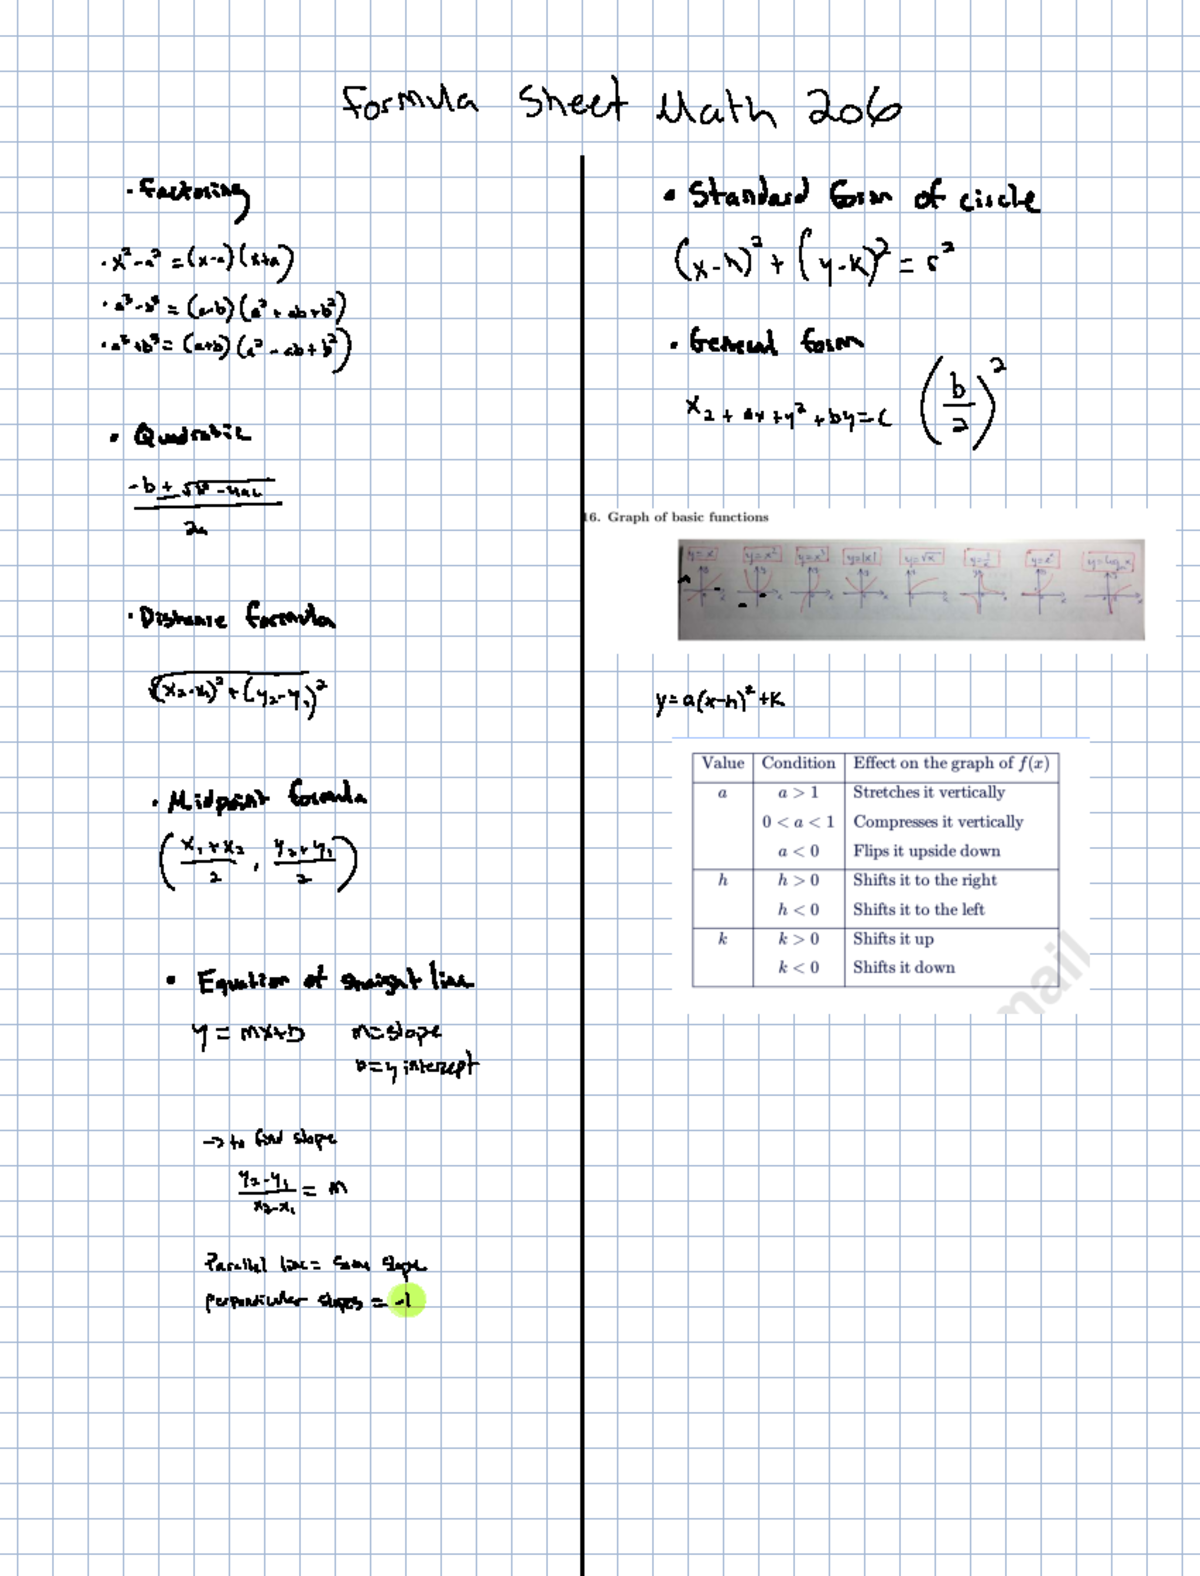 Formula Sheet Math 206
• Factoring
• x² - a² = (x-a)(x+a)
• a³ - b³ = (a-b)(a² + ab + b²)
• a³ + b³ = (a+b)(a² - ab + b²)
• Quadratic
-b ± √b² - 4ac
2a
• Distance formula
√(x₂-x₁)² + (y₂-y₁)²
• Midpoint formula
(x₁ + x₂ / 2 , y₂ + y₁ / 2)
• Equation of straight line
y = mx+b m=slope
b=y intercept
→ to find slope
y₂-y₁ / x₂-x₁ = m
Parallel line = same slope
perpendicular slopes = -1
• Standard form of circle
(x-h)² + (y-k)² = r²
• General form
x₂ + ax + y² + by = c (b/2)²
16. Graph of basic functions
y=x y=x² y=x³ y=|x| y=√x
y=a(x-h)² + k
Value Condition Effect on the graph of f(x)
a a > 1 Stretches it vertically
0 < a < 1 Compresses it vertically
a < 0 Flips it upside down
h h > 0 Shifts it to the right
h < 0 Shifts it to the left
k k > 0 Shifts it up
k < 0 Shifts it down